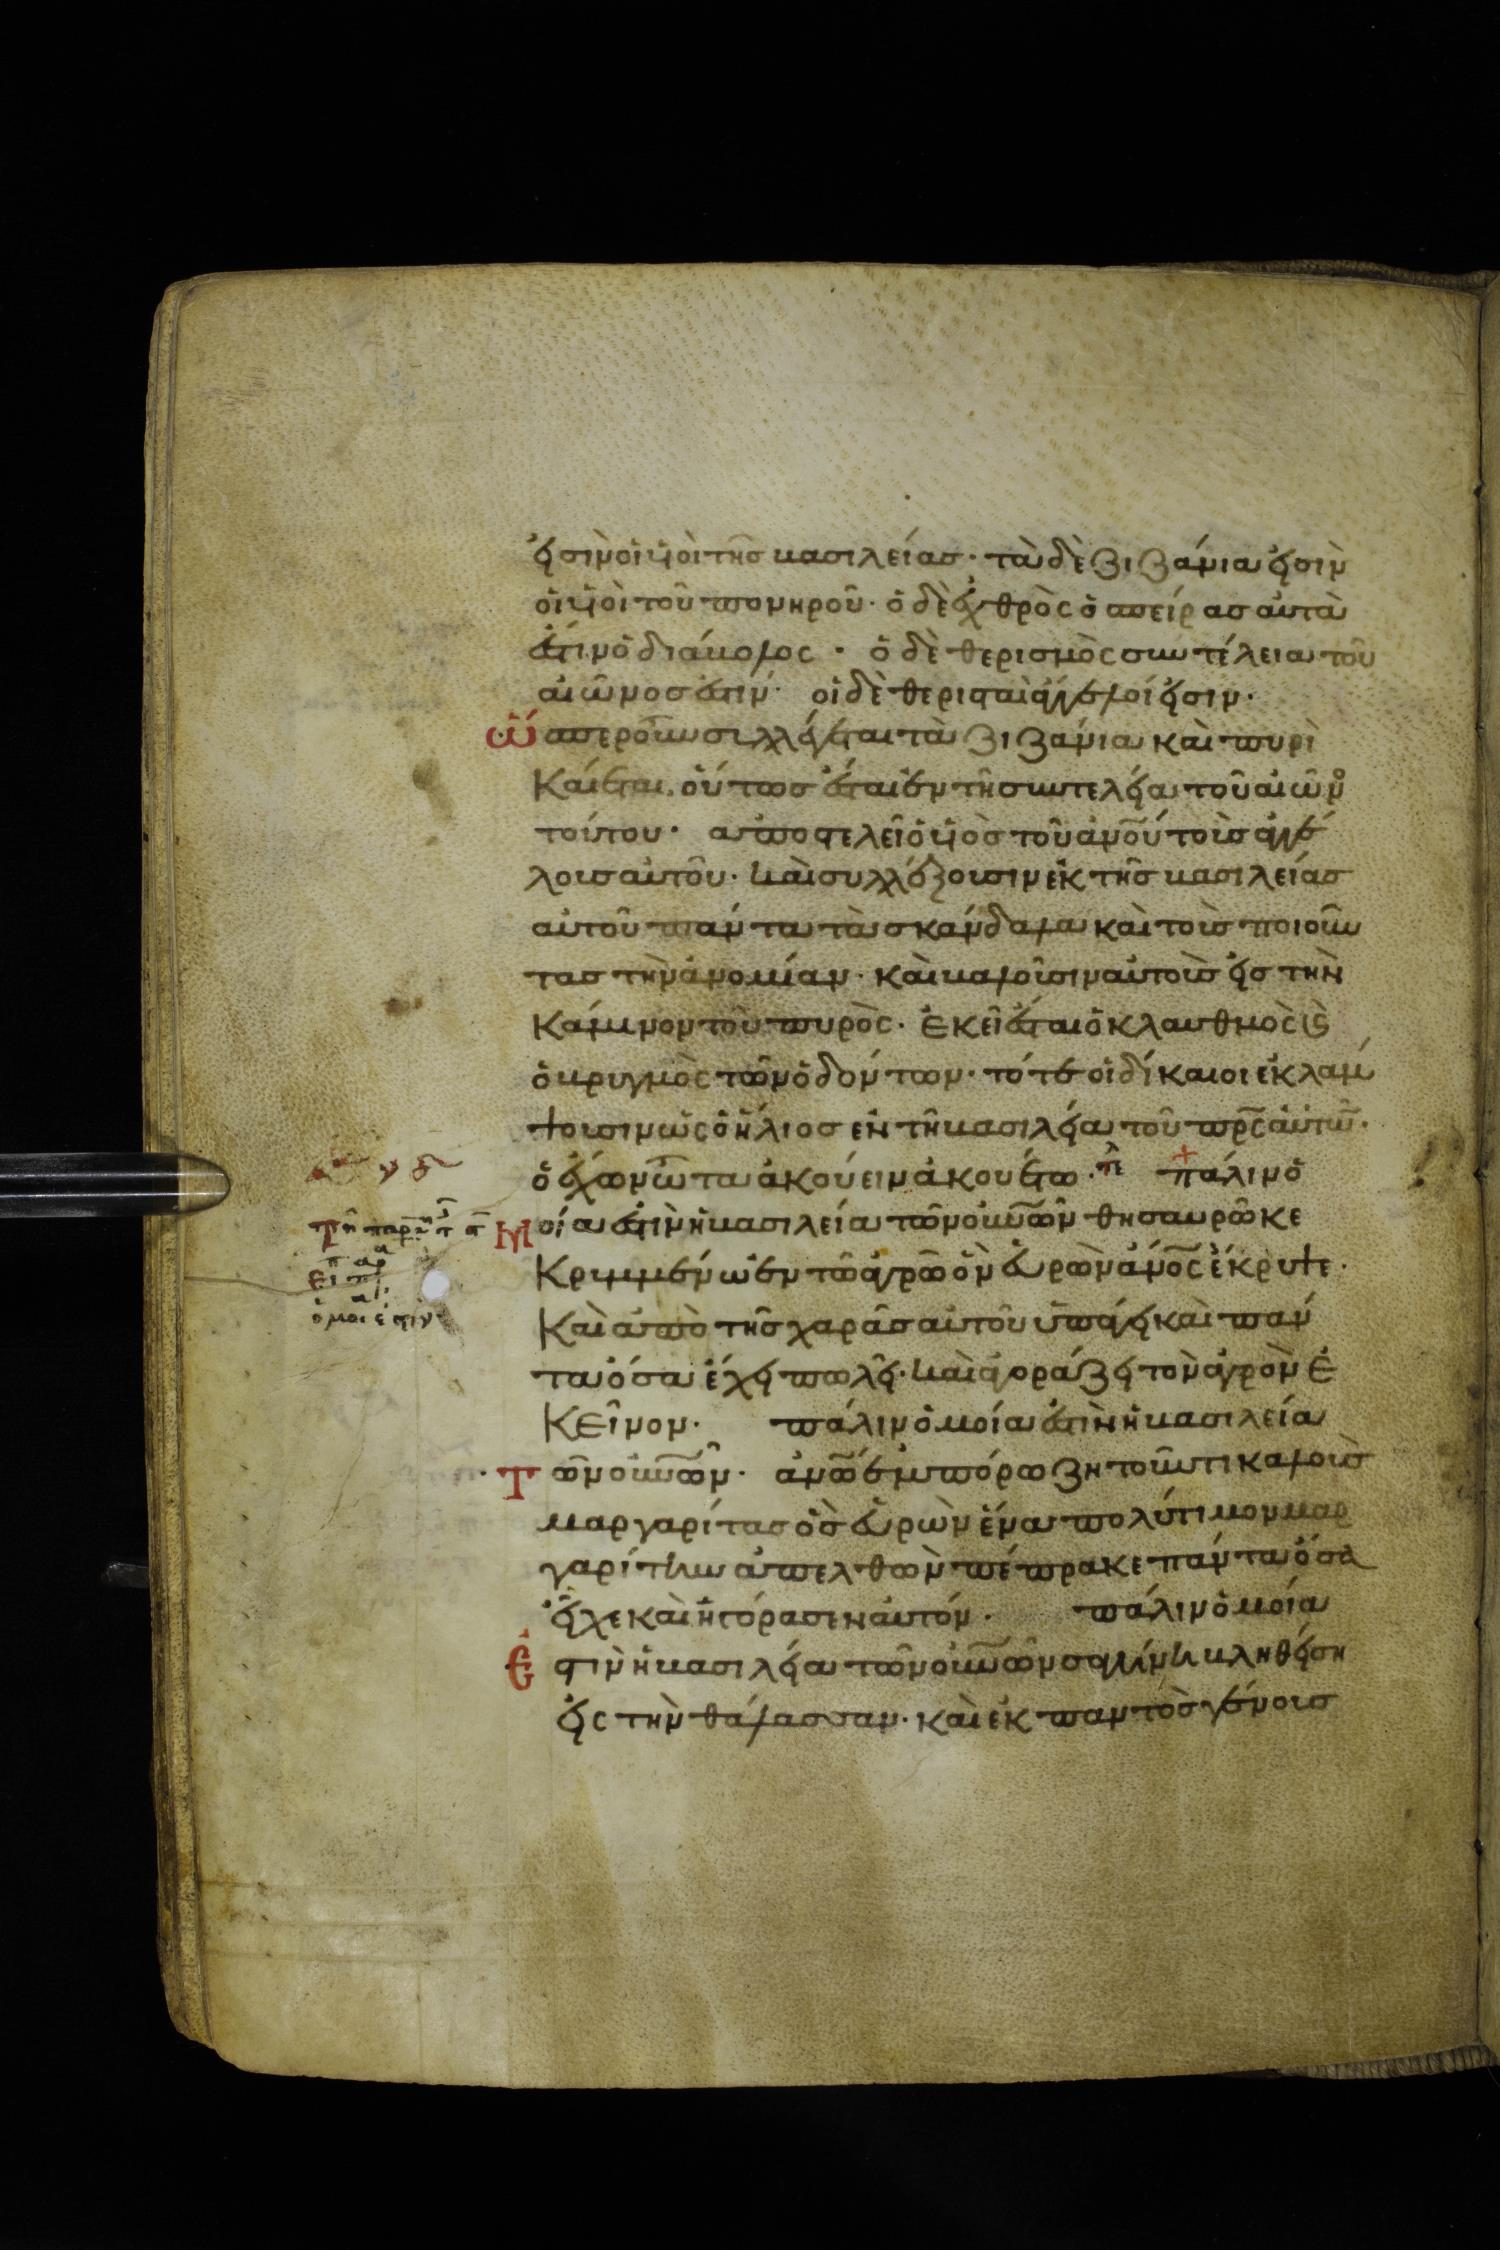 εἰσὶν οἱ υἱοὶ τῆς βασιλείας· τὰ δὲ ζιζάνια εἰσὶν
οἱ υἱοὶ τοῦ πονηροῦ· ὁ δὲ ἐχθρὸς ὁ σπείρας αὐτὰ
ἐστιν ὁ διάβολος · ὁ δὲ θερισμὸς συντέλεια τοῦ
αἰῶνος ἐστιν· οἱ δὲ θερισταὶ ἄγγελοί εἰσιν·
Ὥσπερ οὖν συλλέγεται τὰ ζιζάνια καὶ πυρὶ
Καίεται, οὕτως ἔσται ἐν τῇ συντελεία τοῦ αἰῶνο
τούτου· ἀποστελεῖ ὁ υἱὸς τοῦ ἀνου τοὺς ἀγγέ
λους αὐτοῦ· καὶ συλλέξουσιν ἐκ τῆς βασιλείας
αὐτοῦ πάντα τὰ σκάνδαλα καὶ τοὺς ποιοῦν
τας τὴν ἀνομίαν· καὶ βαλοῦσιν αὐτοὺς εἰς τὴν
Κάμινον τοῦ πυρὸς· ἐκεῖ ἔσται ὁ κλαυθμὸς κ
ὁ βρυγμὸς τῶν ὀδόντων· τότε οἱ δίκαιοι ἐκλάμ
ψουσιν ὡς ὁ ἥλιος ἐν τῇ βασιλεία τοῦ πρς αὐτῶ·
ὁ ἔχων ὦτα ἀκούειν ἀκουέτω· πάλιν ὁ
Μοία ἐστὶν ἡ βασιλεία τῶν οὐνῶν θησαυρῶ κε
Κρυμμένω ἐν τῶ ἀγρῶ ὃν εὑρὼν ἀνος ἔκρυψε·
Καὶ ἀπὸ τῆς χαρᾶς αὐτοῦ ὑπάγει καὶ πάν
τα ὅσα ἔχει πωλεῖ· καὶ ἀγοράζει τὸν ἀγρὸν ἐ
Κεῖνον· πάλιν ὁμοία ἐστὶν ἡ βασιλεία
Τῶν οὐνῶν· ἀνω ἐμπόρω ζητοῦντι καλοὺς
μαργαρίτας ὃς εὑρὼν ἕνα πολύτιμον μαρ
γαρίτην ἀπελθὼν πέπρακε πάντα ὅσα
εἶχε καὶ ἠγόρασεν αὐτόν· πάλιν ὁμοία
Ἐστὶν ἡ βασιλεία τῶν οὐνῶν σαγήνη βληθείση
εἰς τὴν θάλασσαν· καὶ ἐκ παντὸς γένους